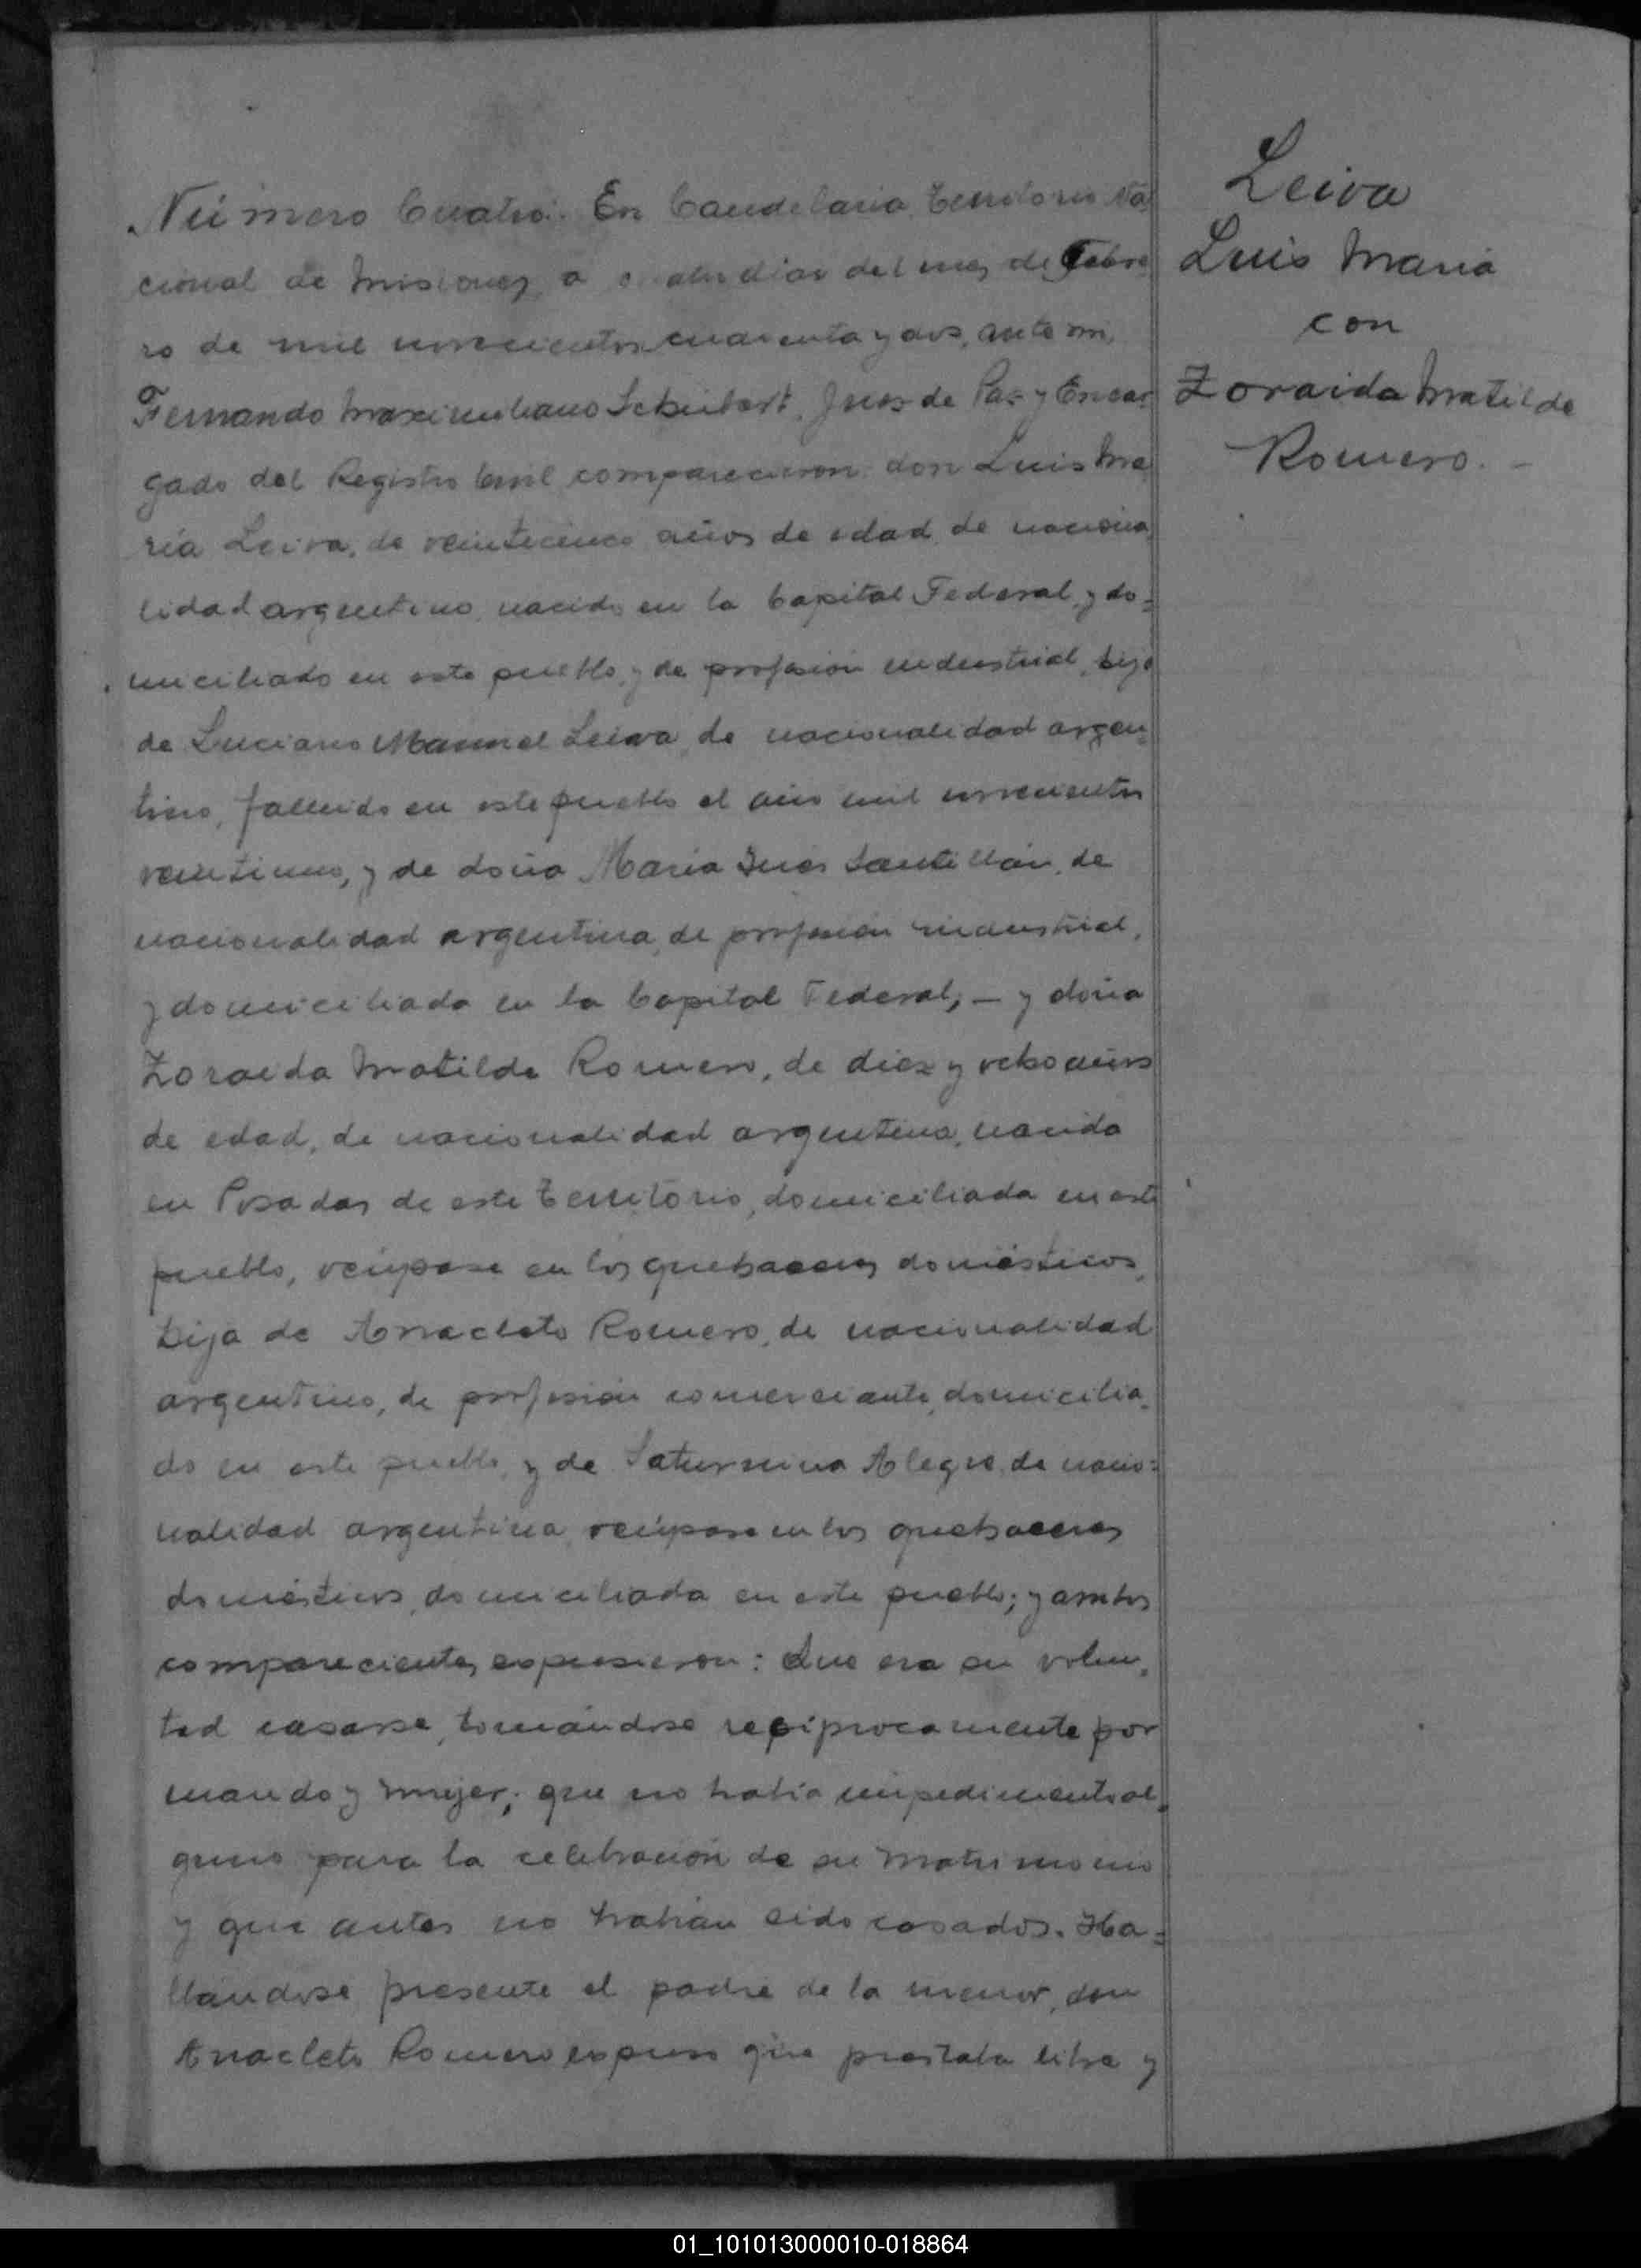 Número Cuatro. En Candelaria, Territorio Na=
cional de Misiones, a cuatro dias del mes de Febre
ro de mil novecientos cuarenta y dos, ante mi,
Fernando Maximiliano Juez de Paz y Encar
gado del Registro Civil comparecieron: don Luis Ma
ría Leiva, de veinticinco años de edad, de naciona
lidad argentino, nacido en la Capital Federal, y do=
miciliado en este pueblo, y de profesión industrial, hijo
de Luciano Manuel Leiva, de nacionalidad argen
tino, fallecido en este pueblo el año mil novecientos
veintiuno, y de doña María Inés Santillán, de
nacionalidad argentina, de profesión industrial,
y domiciliada en la Capital Federal; — y doña
Zoraida Matilde Romero, de diez y ocho años
de edad, de nacionalidad argentina, nacida
en Posadas de este Territorio, domiciliada en este
pueblo, ocúpase en los quehaceres domésticos,
hija de Anacleto Romero, de nacionalidad
argentino, de profesión comerciante, domicilia=
do en este pueblo, y de Saturnina Alegre, de nacio=
nalidad argentina, ocúpase en los quehaceres
domésticos, domiciliada en este pueblo; y ambos
comparecientes expusieron: Que era su volun=
tad casarse, tomándose recíprocamente por
marido y mujer; que no había impedimento al=
guno para la celebración de su matrimonio
y que antes no habían sido casados. Ha=
llándose presente el padre de la menor, don
Anacleto Romero expuso que prestaba libre y
Leiva
Luis María
con
Zoraida Matilde
Romero. —
01_101013000010-018864